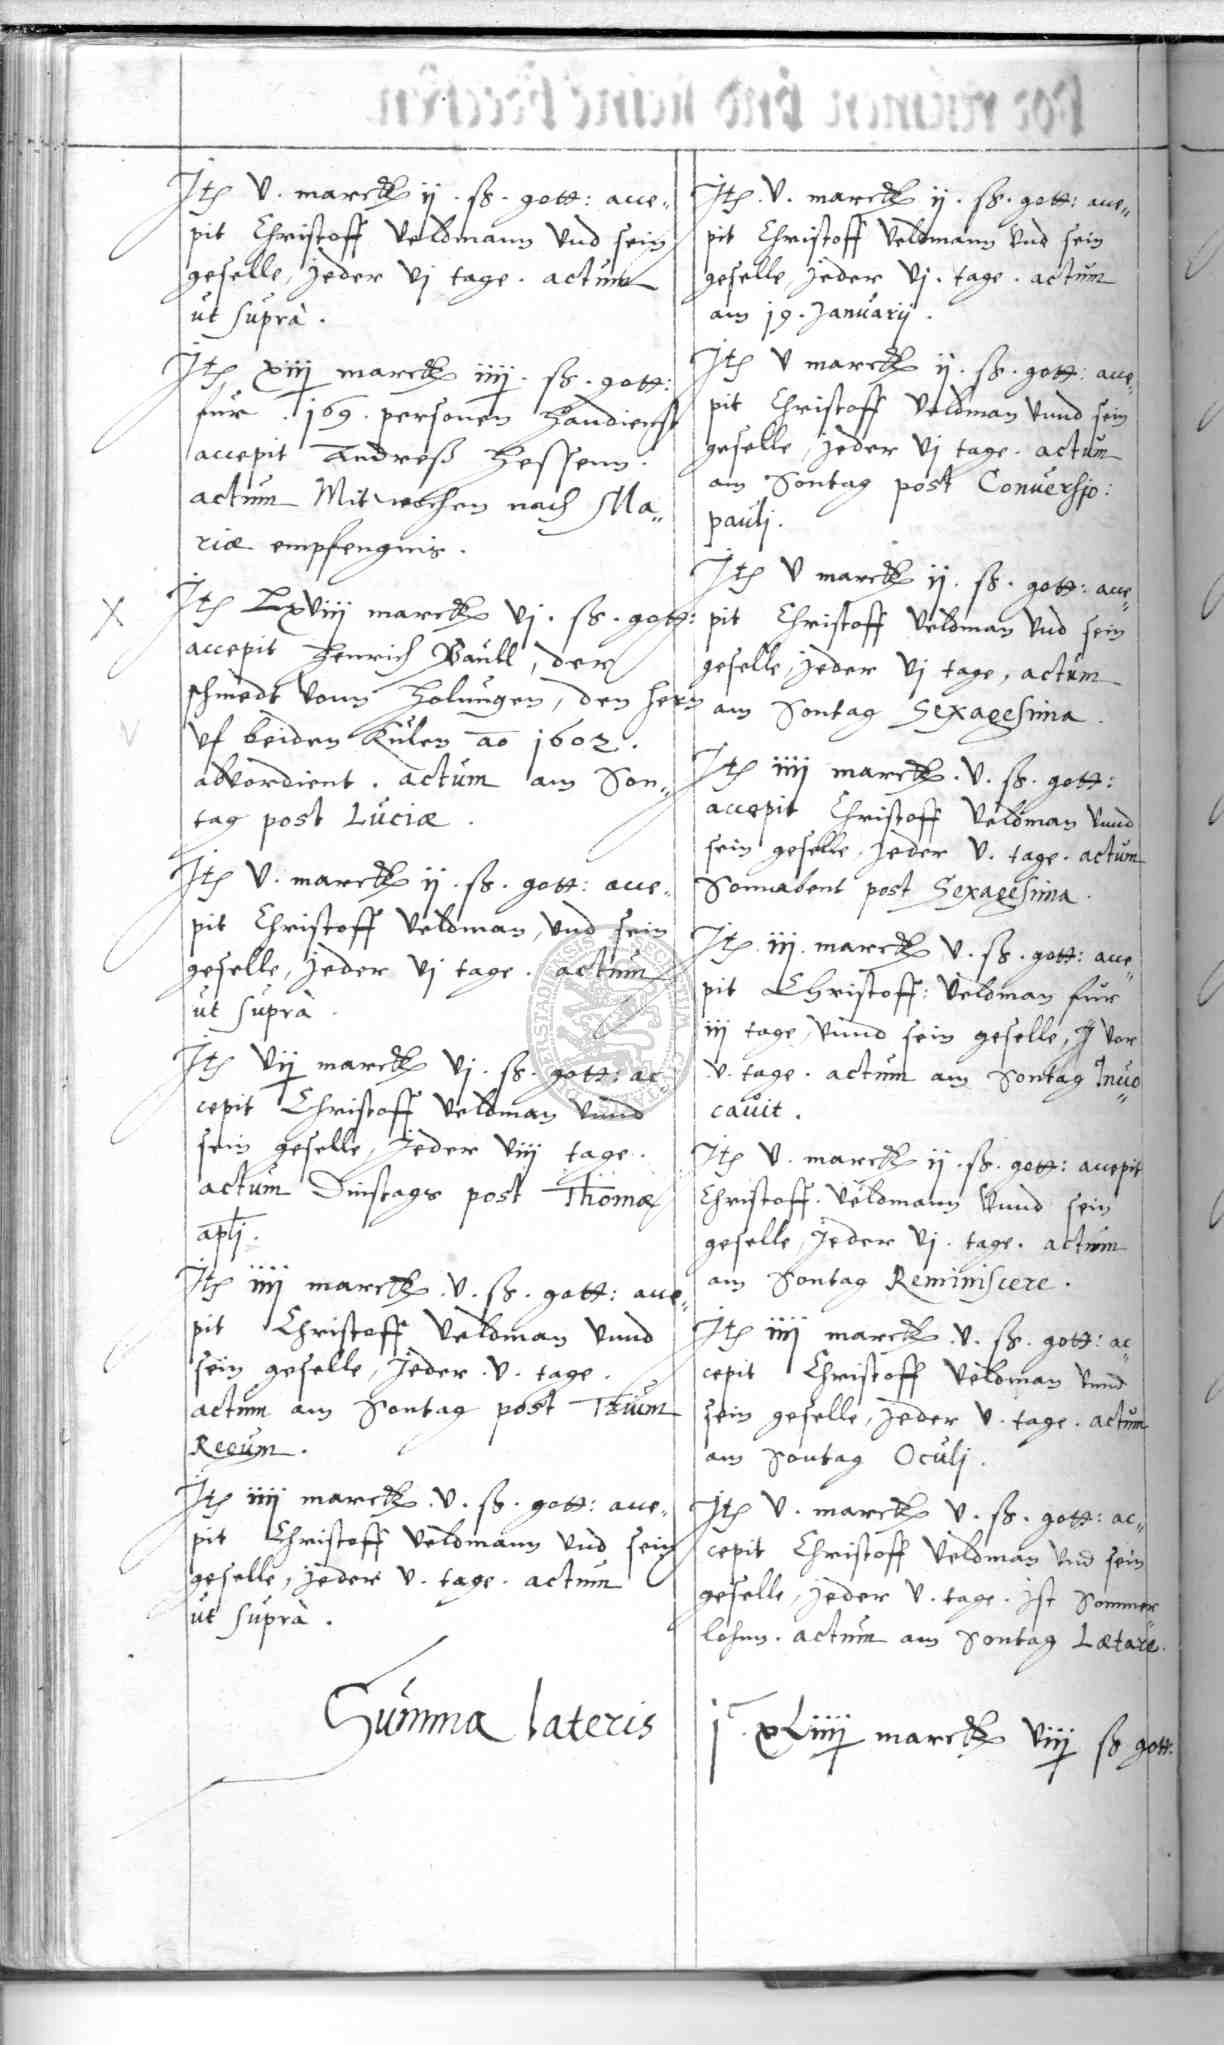 Jtem V. marck ij. ß. gott: acce„
pit Christoff Veldmann Vnd sein
geselle, Jeder Vj tage. actum
ut suprà.
Jtem xiij marck iiij. ß. gott:
fur. 169. personen Handienst
accepit Andreß Hessenn.
actum Mitwochen nach Ma„
riæ empfengnis.
Jtem LxViij marck Vj. ß. gott:
accepit Henrich Paull, der
schmedt Vonn Holungen, den Hern
Vf beiden Kulen ao 1602.
abVordient. actum am Son„
tag post Luciæ.
Jtem V. marck ij. ß. gott: acce„
pit Christoff Veldman, Vnd sein
geselle, Jeder Vj tage. actum
ut suprà.
Jtem Vij marck Vj. ß. gott: ac„
cepit Christoff Veldman Vnnd
sein geselle, Jeder Viij tage.
actum Dinstags post Thomæ
apli.
Jtem iiij marck. V. ß. gott: acce„
pit Christoff Veldman Vnnd
sein geselle, Jeder. V. tage.
actum am Sontag post Trium
Regum.
Jtem iiij marck. V. ß. gott: acce„
pit Christoff Veldmann Vnd sein
geselle, Jeder V. tage. actum
ut suprà.
Summa lateris
Jtem. V. marck ij. ß. gott: acce„
pit Christoff Veldmann Vnd sein
geselle, Jeder Vj. tage. actum
am 19. Januarij.
Jtem V marck ij. ß. gott: acce„
pit Christoff Veldman Vnnd sein
geselle, Jeder Vj tage. actum
am Sontag post Conuersio:
paulj.
Jtem V marck ij. ß. gott: acce„
pit Christoff Veldman Vnd sein
geselle, Jeder Vj tage, actum
am Sontag Sexagesima.
Jtem iiij marck. V. ß. gott:
accepit Christoff Veldman Vnnd
sein geselle, Jeder V. tage. actum
Sonnabent post Sexagesima.
Jtem. iij. marck V. ß. gott: acce„
pit Christoff: Veldman fur
iij tage, Vnnd sein geselle, Vor
.V. tage. actum am Sontag Inuo„
cauit.
Jtem V. marck ij. ß. gott: accepit
Christoff. Veldmann Vnnd sein
geselle, Jeder Vj. tage. actum
am Sontag Reminiscere.
Jtem iiij marck. V. ß. gott: ac„
cepit Christoff Veldman Vnnd
sein geselle, Jeder V. tage. actum
am Sontag Oculj.
Jtem V. marck V. ß. gott: ac„
cepit Christoff Veldman Vnd sein
geselle, Jeder V. tage. Jst Sommer„
lohnn. actum am Sontag Lætare.
jC. xLiiij marck Viij ß gott.